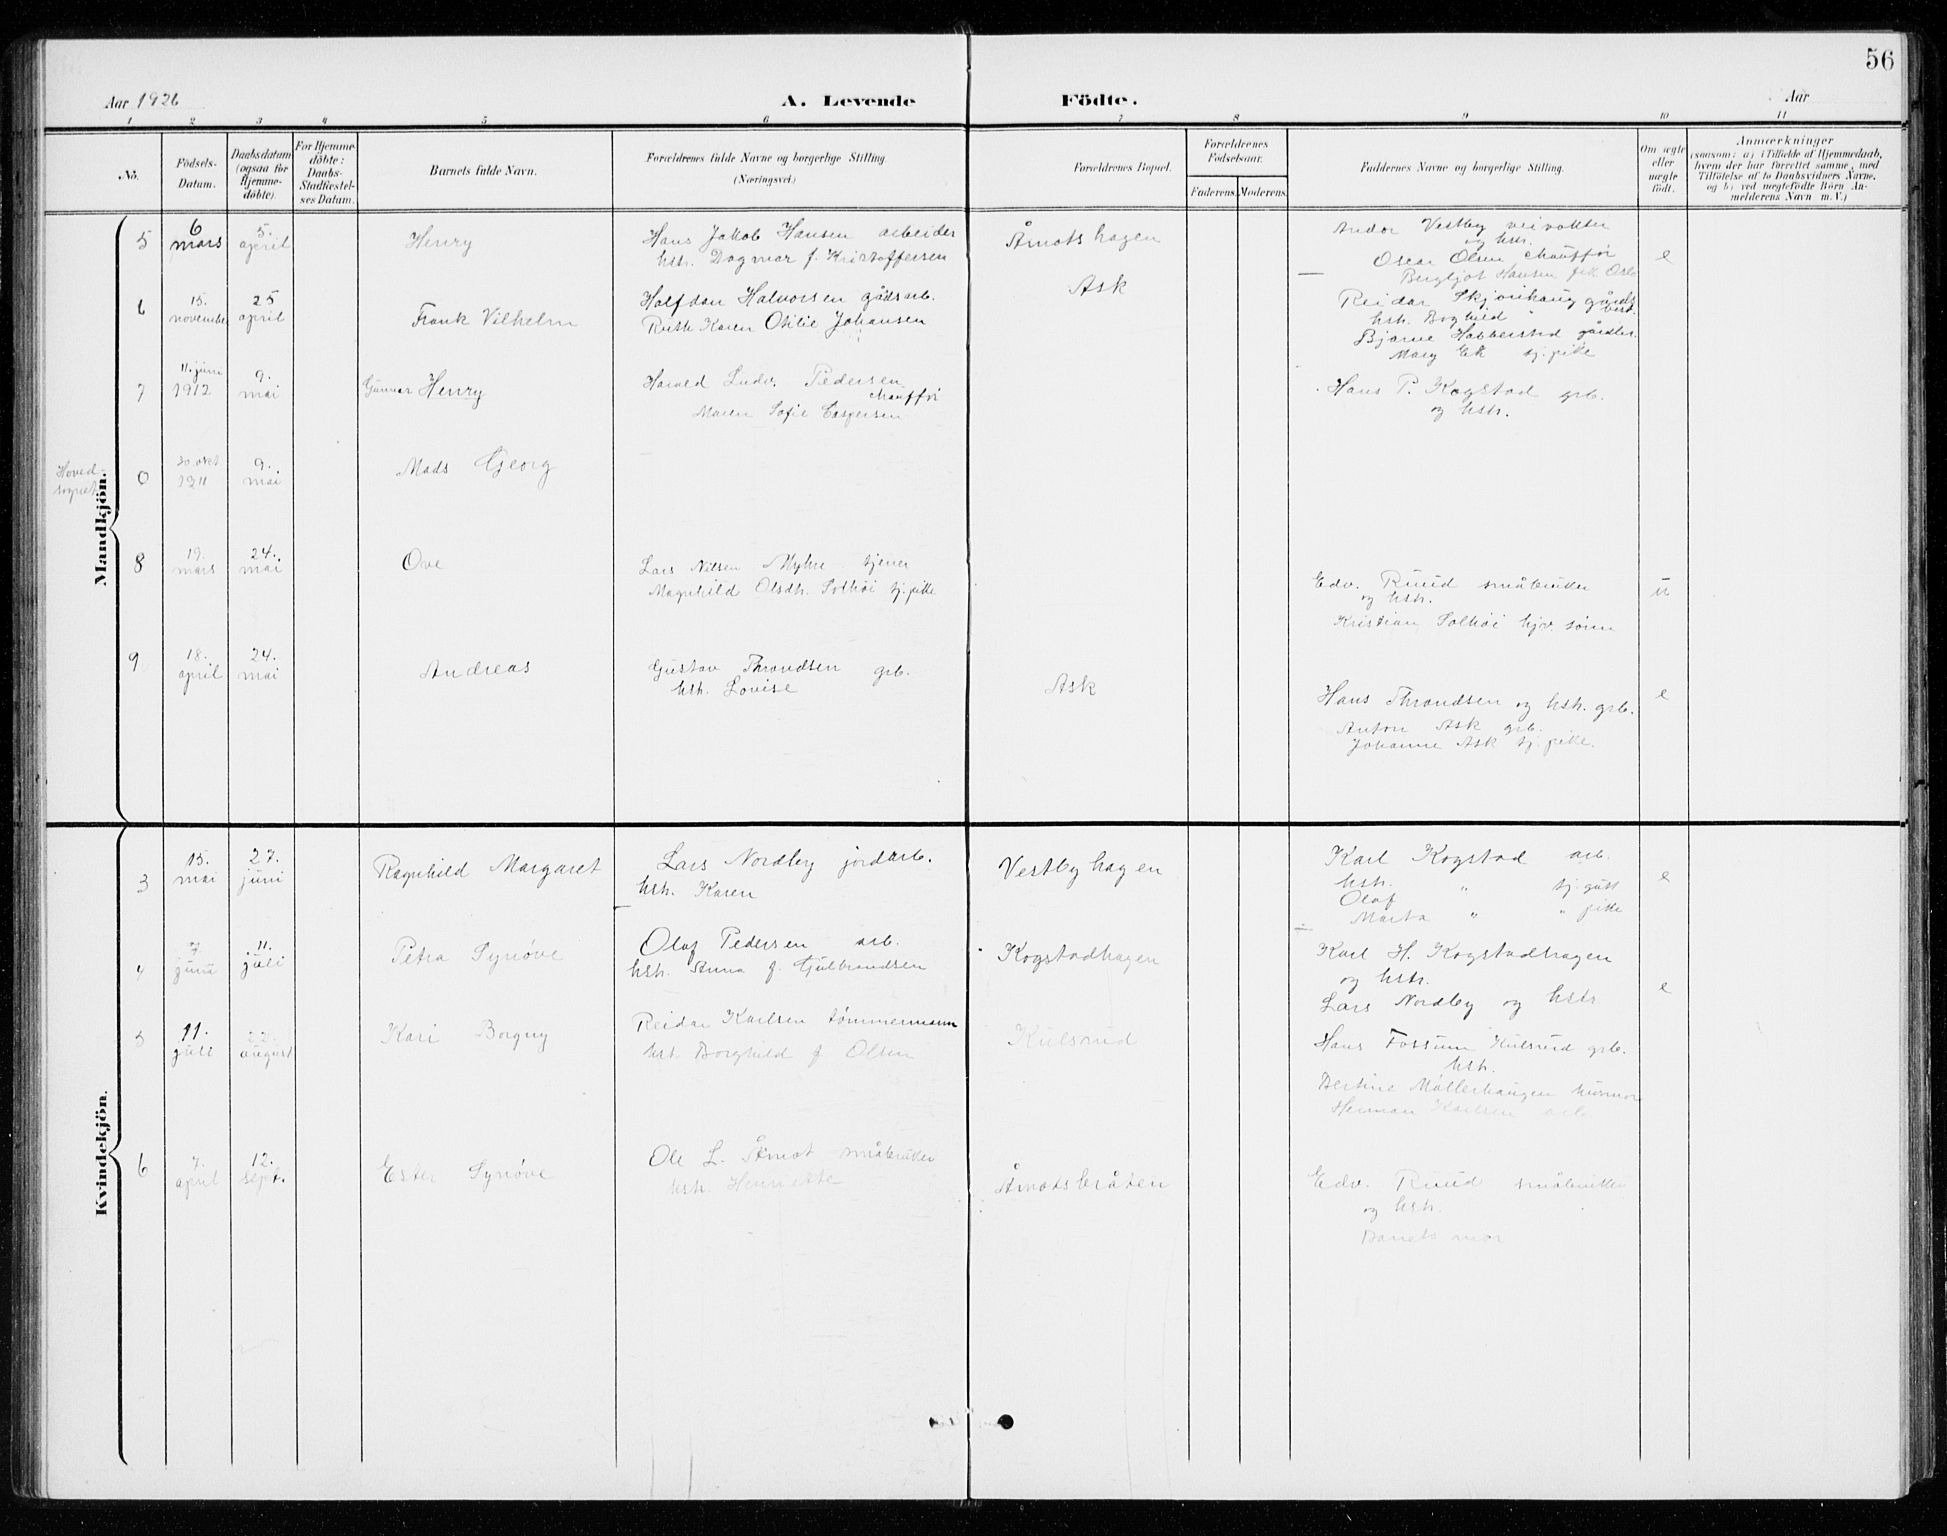 56
Aar 1926 A. Levende Födte. Aar
1 2 3 4 5 6 7 8 9 10 11
No.
Födsels-
Datum.
Daabsdatum
(ogsaa för
Hjemme-
döbte).
For Hjemme-
döbte:
Daabs-
Stadfæstel-
ses Datum.
Barnets fulde Navn.
Forældrenes fulde Navne og borgerlige Stilling
(Næringsvei.)
Forældrenes Bopæl.
Forældrenes
Födselsaar.
Faderens. Moderens.
Faddernes Navne og borgerlige Stilling.
Om ægte
eller
uægte
födt.
Anmærkninger
(saasom: a) i Tilfælde af Hjemmedaab,
hvem der har forrettet samme, med
Tilföielse af to Daabsvidners Navne,
og b) ved uægtefödte Börn An-
melderens Navn m. V.)
Mandkjön.
5
6
mars
5.
april
Henry
Hans Jakob Hansen arbeider
hstr. Dagmar f. Kristoffersen
Åmotshagen
Andor Vestby veivokter
og hstr.
Oscar Olsen chauffør
Bergljot Hansen Oslo
e
6
15.
november
25
april
Frank Vilhelm
Halfdan Halvorsen gårdsarb.
Ruth Karen Otilie Johansen
Ask
Reidar Skjønhaug
hstr. Boghild "
Bjarne Habberstad
Mary Ek tj.pike
7
11. juni
1912
9.
mai
Gunnar Henry
Harald Ludv. Pedersen
chauffør
Maren Sofie Caspersen
Hans P. Kogstad grb.
og hstr.
Hoved-
sognet
0
30. okt
1911
9.
mai
Mads Georg
8
19.
mars
24.
mai
Ove
Lars Nilsen Myhre tjener
Magnhild Olsdtr. Solhøi tj.pike
Edv. Ruud småbruker
og hstr.
Kristian Solhøi hjv. sønn
u
9
18.
april
24.
mai
Andreas
Gustav Throndsen grb.
hstr. Lovise
Ask
Hans Throndsen og hstr. grb.
Anton Ask grb.
Johanne Ask tj.pike.
e
Kvindekjön.
3
15.
mai
27.
juni
Ragnhild Margaret
Lars Nordby jordarb.
hstr. Karen
Vestbyhagen
Karl Kogstad arb.
hstr.
Olaf " tj.gutt
Marta " " pike
e
4
7
juni
11.
juli
Petra Synøve
Olaf Pedersen arb.
hstr. Anna f. Gulbrandsen
Kogstadhagen
Karl H. Kogstadhagen
og hstr.
Lars Nordby og hstr
e
5
11.
juli
22.
august
Kari Borgny
Reidar Karlsen tømmermann
hst. Borghild f Olsen
Kulsrud
Hans Fossum Kulsrud grb.
hstr.
Bertine Møllerhaugen husmor
Herman Karlsen arb.
6
7.
april
12.
sept.
Ester Synøve
Ole L. Åmot småbruker
hstr. Henriette
Åmotsbråten
Edv. Ruud småbruker
og hstr.
Barnets mor